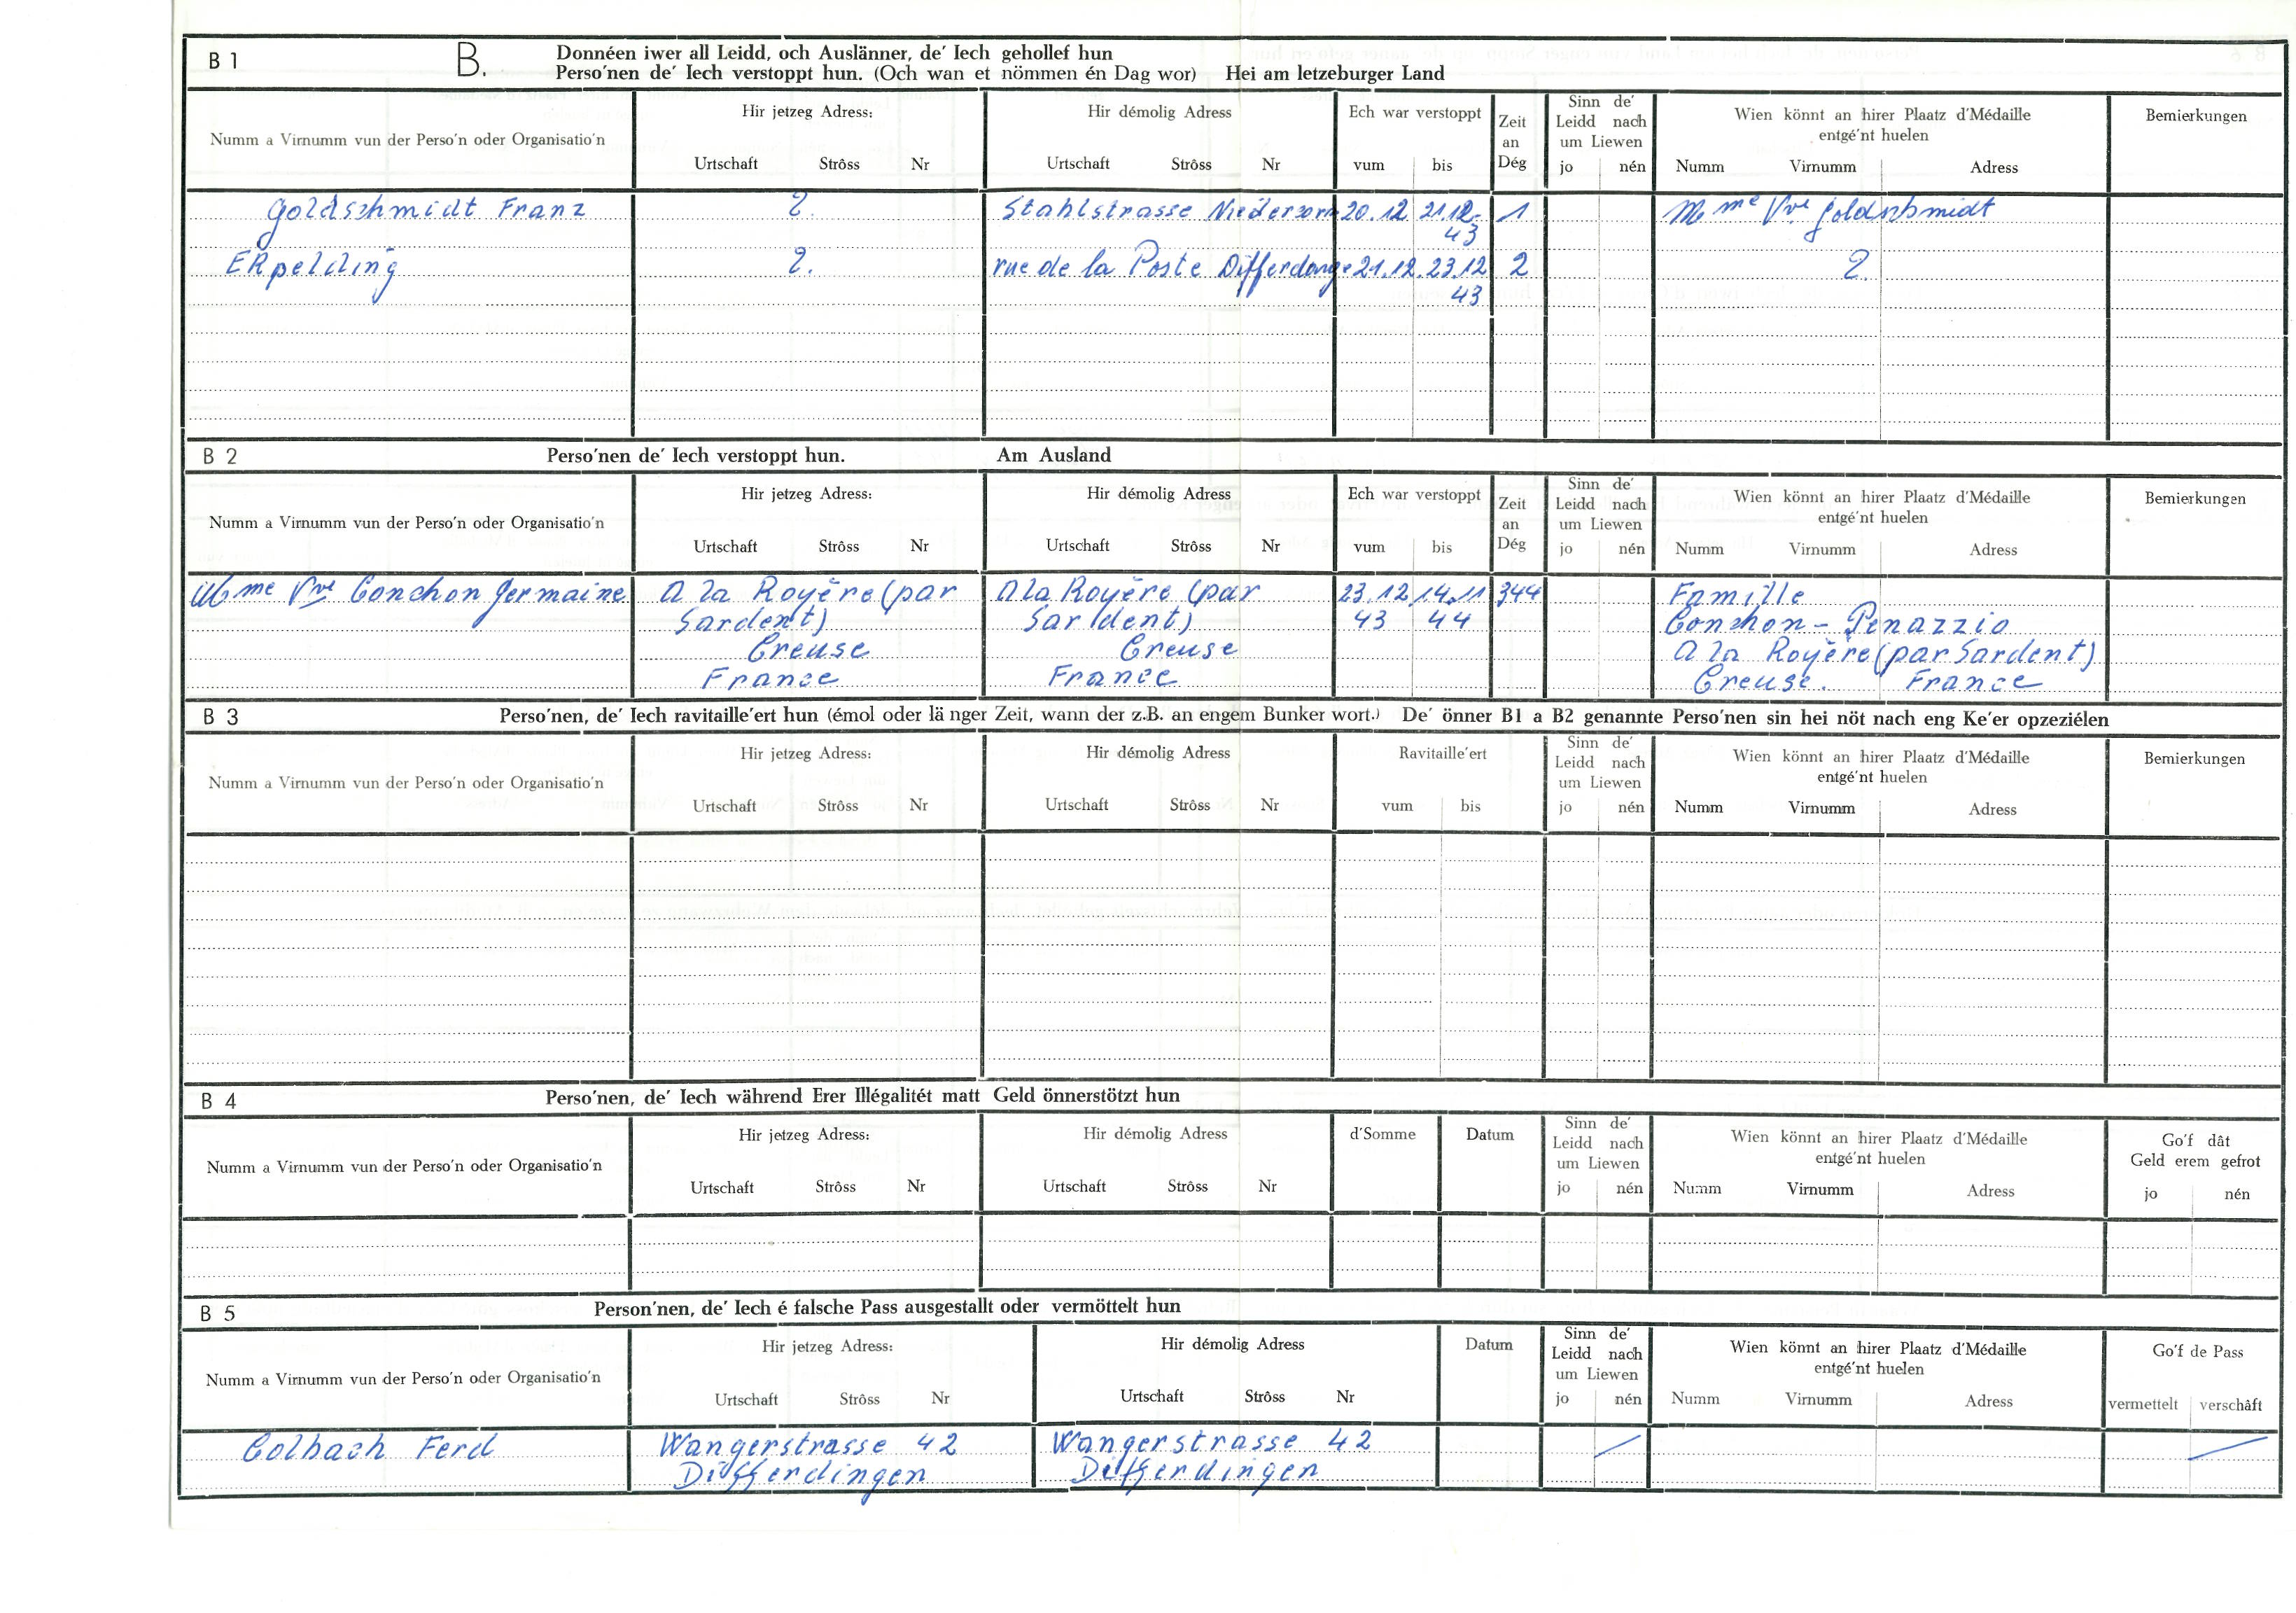 B 1
B.
Donnéen iwer all Leidd, och Auslänner, de' Iech gehollef hun
Perso'nen de' Iech verstoppt hun. (Och wan et nömmen én Dag wor) Hei am letzeburger Land
Numm a Virnumm vun der Perso'n oder Organisatio'n
Hir jetzeg Adress:
Urtschaft Strôss Nr
Hir démolig Adress
Urtschaft Strôss Nr
Ech war verstoppt
vum bis
Zeit
an
Dég
Sinn de'
Leidd nach
um Liewen
jo nén
Wien könnt an hirer Plaatz d'Médaille
entgé'nt huelen
Numm Virnumm Adress
Bemierkungen
Goldschmidt Franz ?. Stahlstrasse Niedersorn 20.12 21.12. 1 Mme Vve Goldschmidt
43
ERpelding ?. rue de la Poste Differdange 21.12. 23.12 2 ?.
43
B 2
Perso'nen de' Iech verstoppt hun. Am Ausland
Numm a Virnumm vun der Perso'n oder Organisatio'n
Hir jetzeg Adress:
Urtschaft Strôss Nr
Hir démolig Adress
Urtschaft Strôss Nr
Ech war verstoppt
vum bis
Zeit
an
Dég
Sinn de'
Leidd nach
um Liewen
jo nén
Wien könnt an hirer Plaatz d'Médaille
entgé'nt huelen
Numm Virnumm Adress
Bemierkungen
Mme Vve Conchon Germaine A la Royère (par A la Royère (par 23.12 14.11 344 Famille
Sardent) Sardent) 43 44 Conchon - Penazzio
Creuse Creuse A la Royère (par Sardent)
France France Creuse. France
B 3
Perso'nen, de' Iech ravitaille'ert hun (émol oder länger Zeit, wann der z.B. an engem Bunker wort.) De' önner B1 a B2 genannte Perso'nen sin hei nöt nach eng Ke'er opzeziélen
Numm a Virnumm vun der Perso'n oder Organisatio'n
Hir jetzeg Adress:
Urtschaft Strôss Nr
Hir démolig Adress
Urtschaft Strôss Nr
Ravitaille'ert
vum bis
Sinn de'
Leidd nach
um Liewen
jo nén
Wien könnt an hirer Plaatz d'Médaille
entgé'nt huelen
Numm Virnumm Adress
Bemierkungen
B 4
Perso'nen, de' Iech während Erer Illégalitét matt Geld önnerstötzt hun
Numm a Virnumm vun der Perso'n oder Organisatio'n
Hir jetzeg Adress:
Urtschaft Strôss Nr
Hir démolig Adress
Urtschaft Strôss Nr
d'Somme
Datum
Sinn de'
Leidd nach
um Liewen
jo nén
Wien könnt an hirer Plaatz d'Médaille
entgé'nt huelen
Numm Virnumm Adress
Go'f dât
Geld erem gefrot
jo nén
B 5
Person'nen, de' Iech é falsche Pass ausgestallt oder vermöttelt hun
Numm a Virnumm vun der Perso'n oder Organisatio'n
Hir jetzeg Adress:
Urtschaft Strôss Nr
Hir démolig Adress
Urtschaft Strôss Nr
Datum
Sinn de'
Leidd nach
um Liewen
jo nén
Wien könnt an hirer Plaatz d'Médaille
entgé'nt huelen
Numm Virnumm Adress
Go'f de Pass
vermettelt verschâft
Colbach Ferd Wangerstrasse 42 Wangerstrasse 42
Differdingen Differdingen